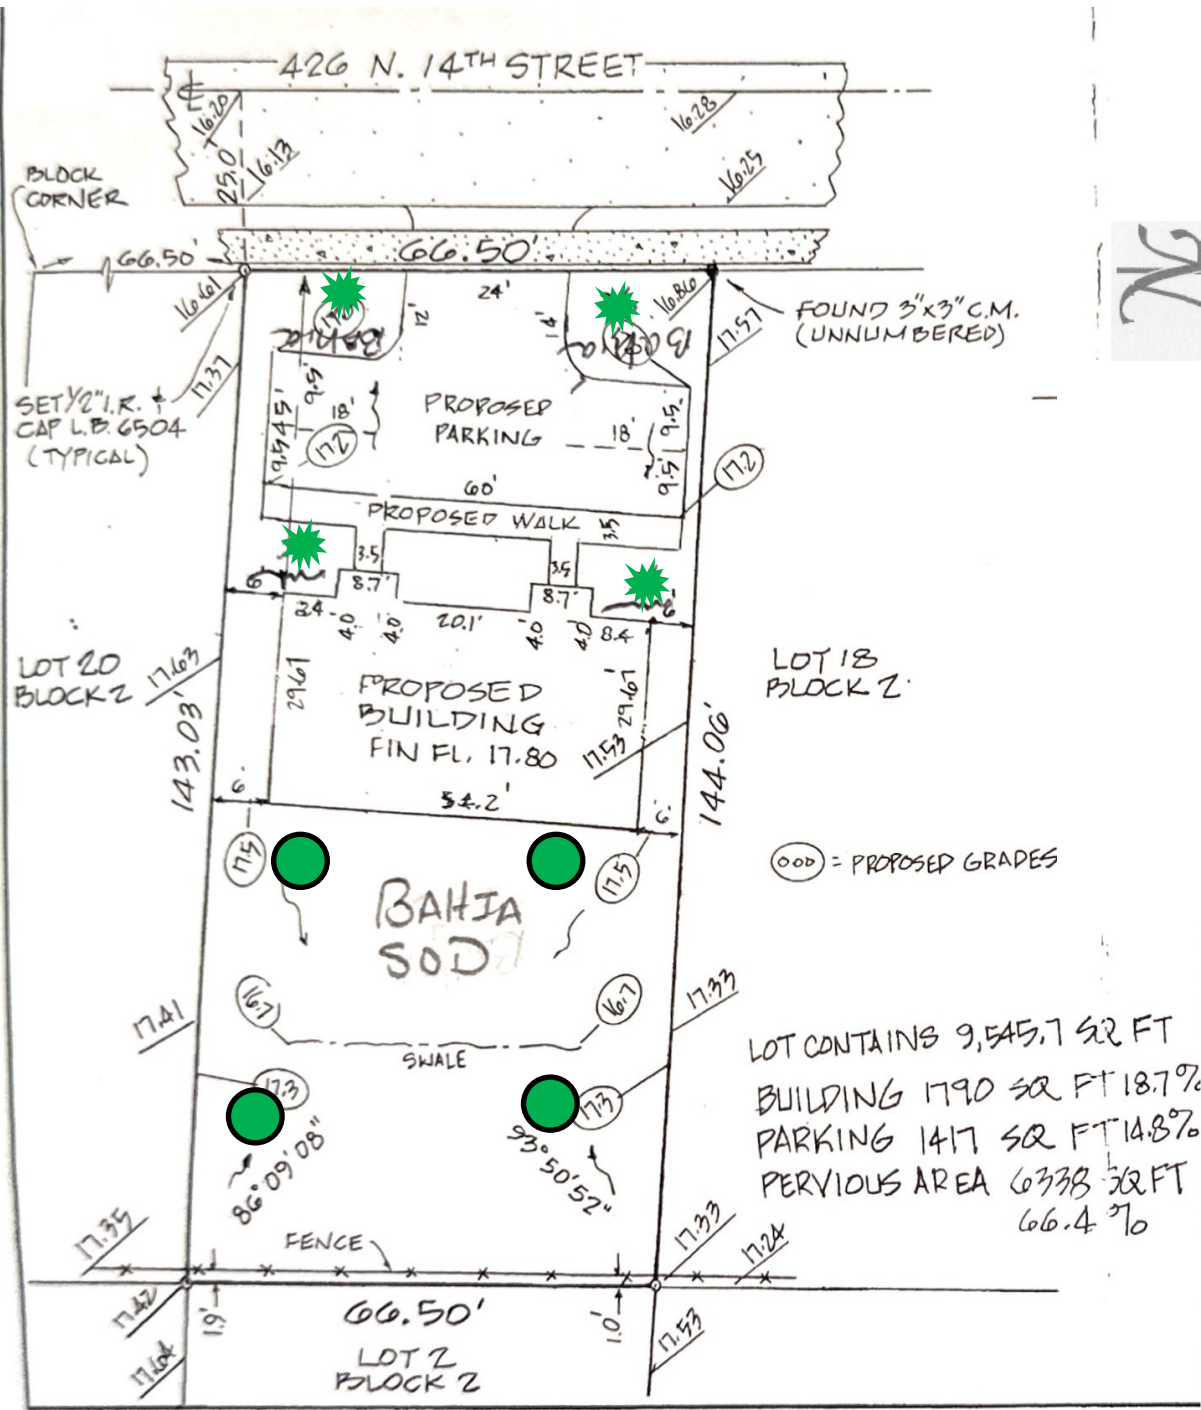 426 N. 14TH STREET
℄
16.20
16.28
25.0'
16.13
16.25
BLOCK
CORNER
66.50'
66.50'
16.61
24'
16.86
FOUND 3"x3" C.M.
(UNNUMBERED)
12'
14'
17.57
Bahia
Bahia
17.37
SET 1/2" I.R. &
CAP L.B. 6504
(TYPICAL)
9.5'
PROPOSED
PARKING
18'
18'
9.5
9.5'
17.2
17.2
60'
PROPOSED WALK
3.5
3.5
3.5
6'
8.7'
8.7'
6'
24
4.0
4.0
20.1'
4.0
4.0
8.4
LOT 20
BLOCK 2
17.63
29.67
PROPOSED
BUILDING
FIN FL. 17.80
29.67'
17.53
LOT 18
BLOCK 2
143.03'
144.06'
6'
54.2'
6'
17.5
17.5
000 = PROPOSED GRADES
BAHIA
SOD
16.7
16.7
17.33
17.41
SWALE
LOT CONTAINS 9,545.7 SQ FT
BUILDING 1790 SQ FT 18.7%
PARKING 1417 SQ FT 14.8%
PERVIOUS AREA 6338 SQ FT
66.4 %
17.3
17.3
86°09'08"
93°50'52"
17.35
FENCE
17.33
17.24
17.42
1.9'
66.50'
1.0'
17.53
17.64
LOT 2
BLOCK 2
N